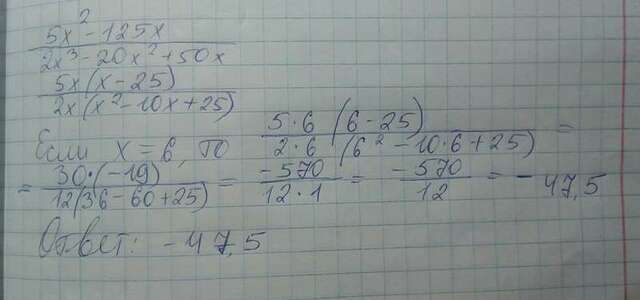 5x² - 125x
2x³ - 20x² + 50x
5x(x - 25)
2x(x² - 10x + 25)
Если x = 6, то 5·6 (6 - 25) / 2·6 (6² - 10·6 + 25) =
= 30·(-19) / 12(36 - 60 + 25) = -570 / 12·1 = -570 / 12 = - 47,5
Ответ: - 47,5